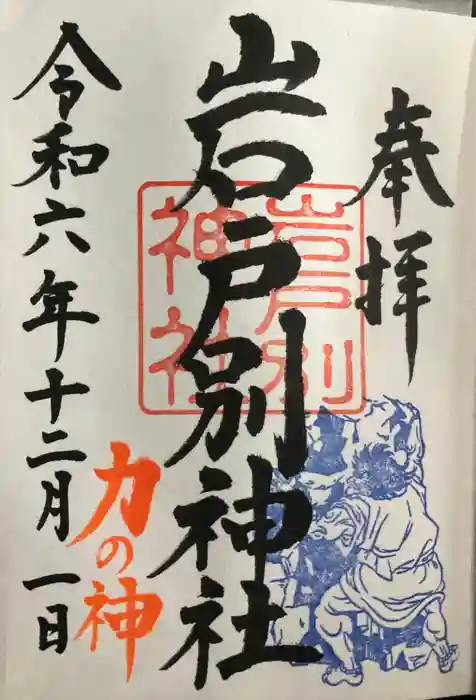 奉拝
岩戸別神社
岩戸別
神社
力の神
令和六年十二月一日